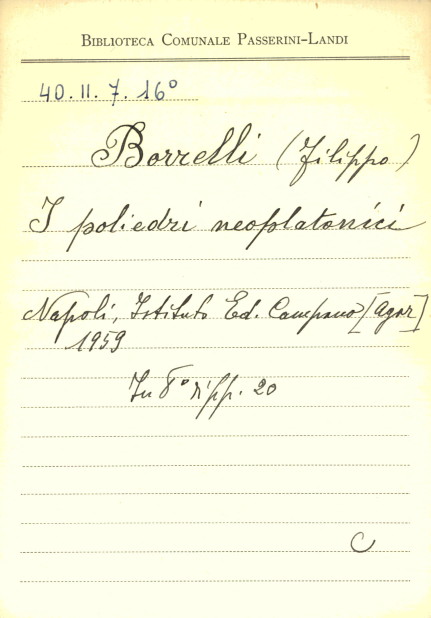 BIBLIOTECA COMUNALE PASSERINI-LANDI
40. II. 7. 16°
Borrelli (Filippo)
I poliedri neoplatonici
Napoli, Istituto Ed. Campano [Agar]
1959
In 8° di pp. 20
C